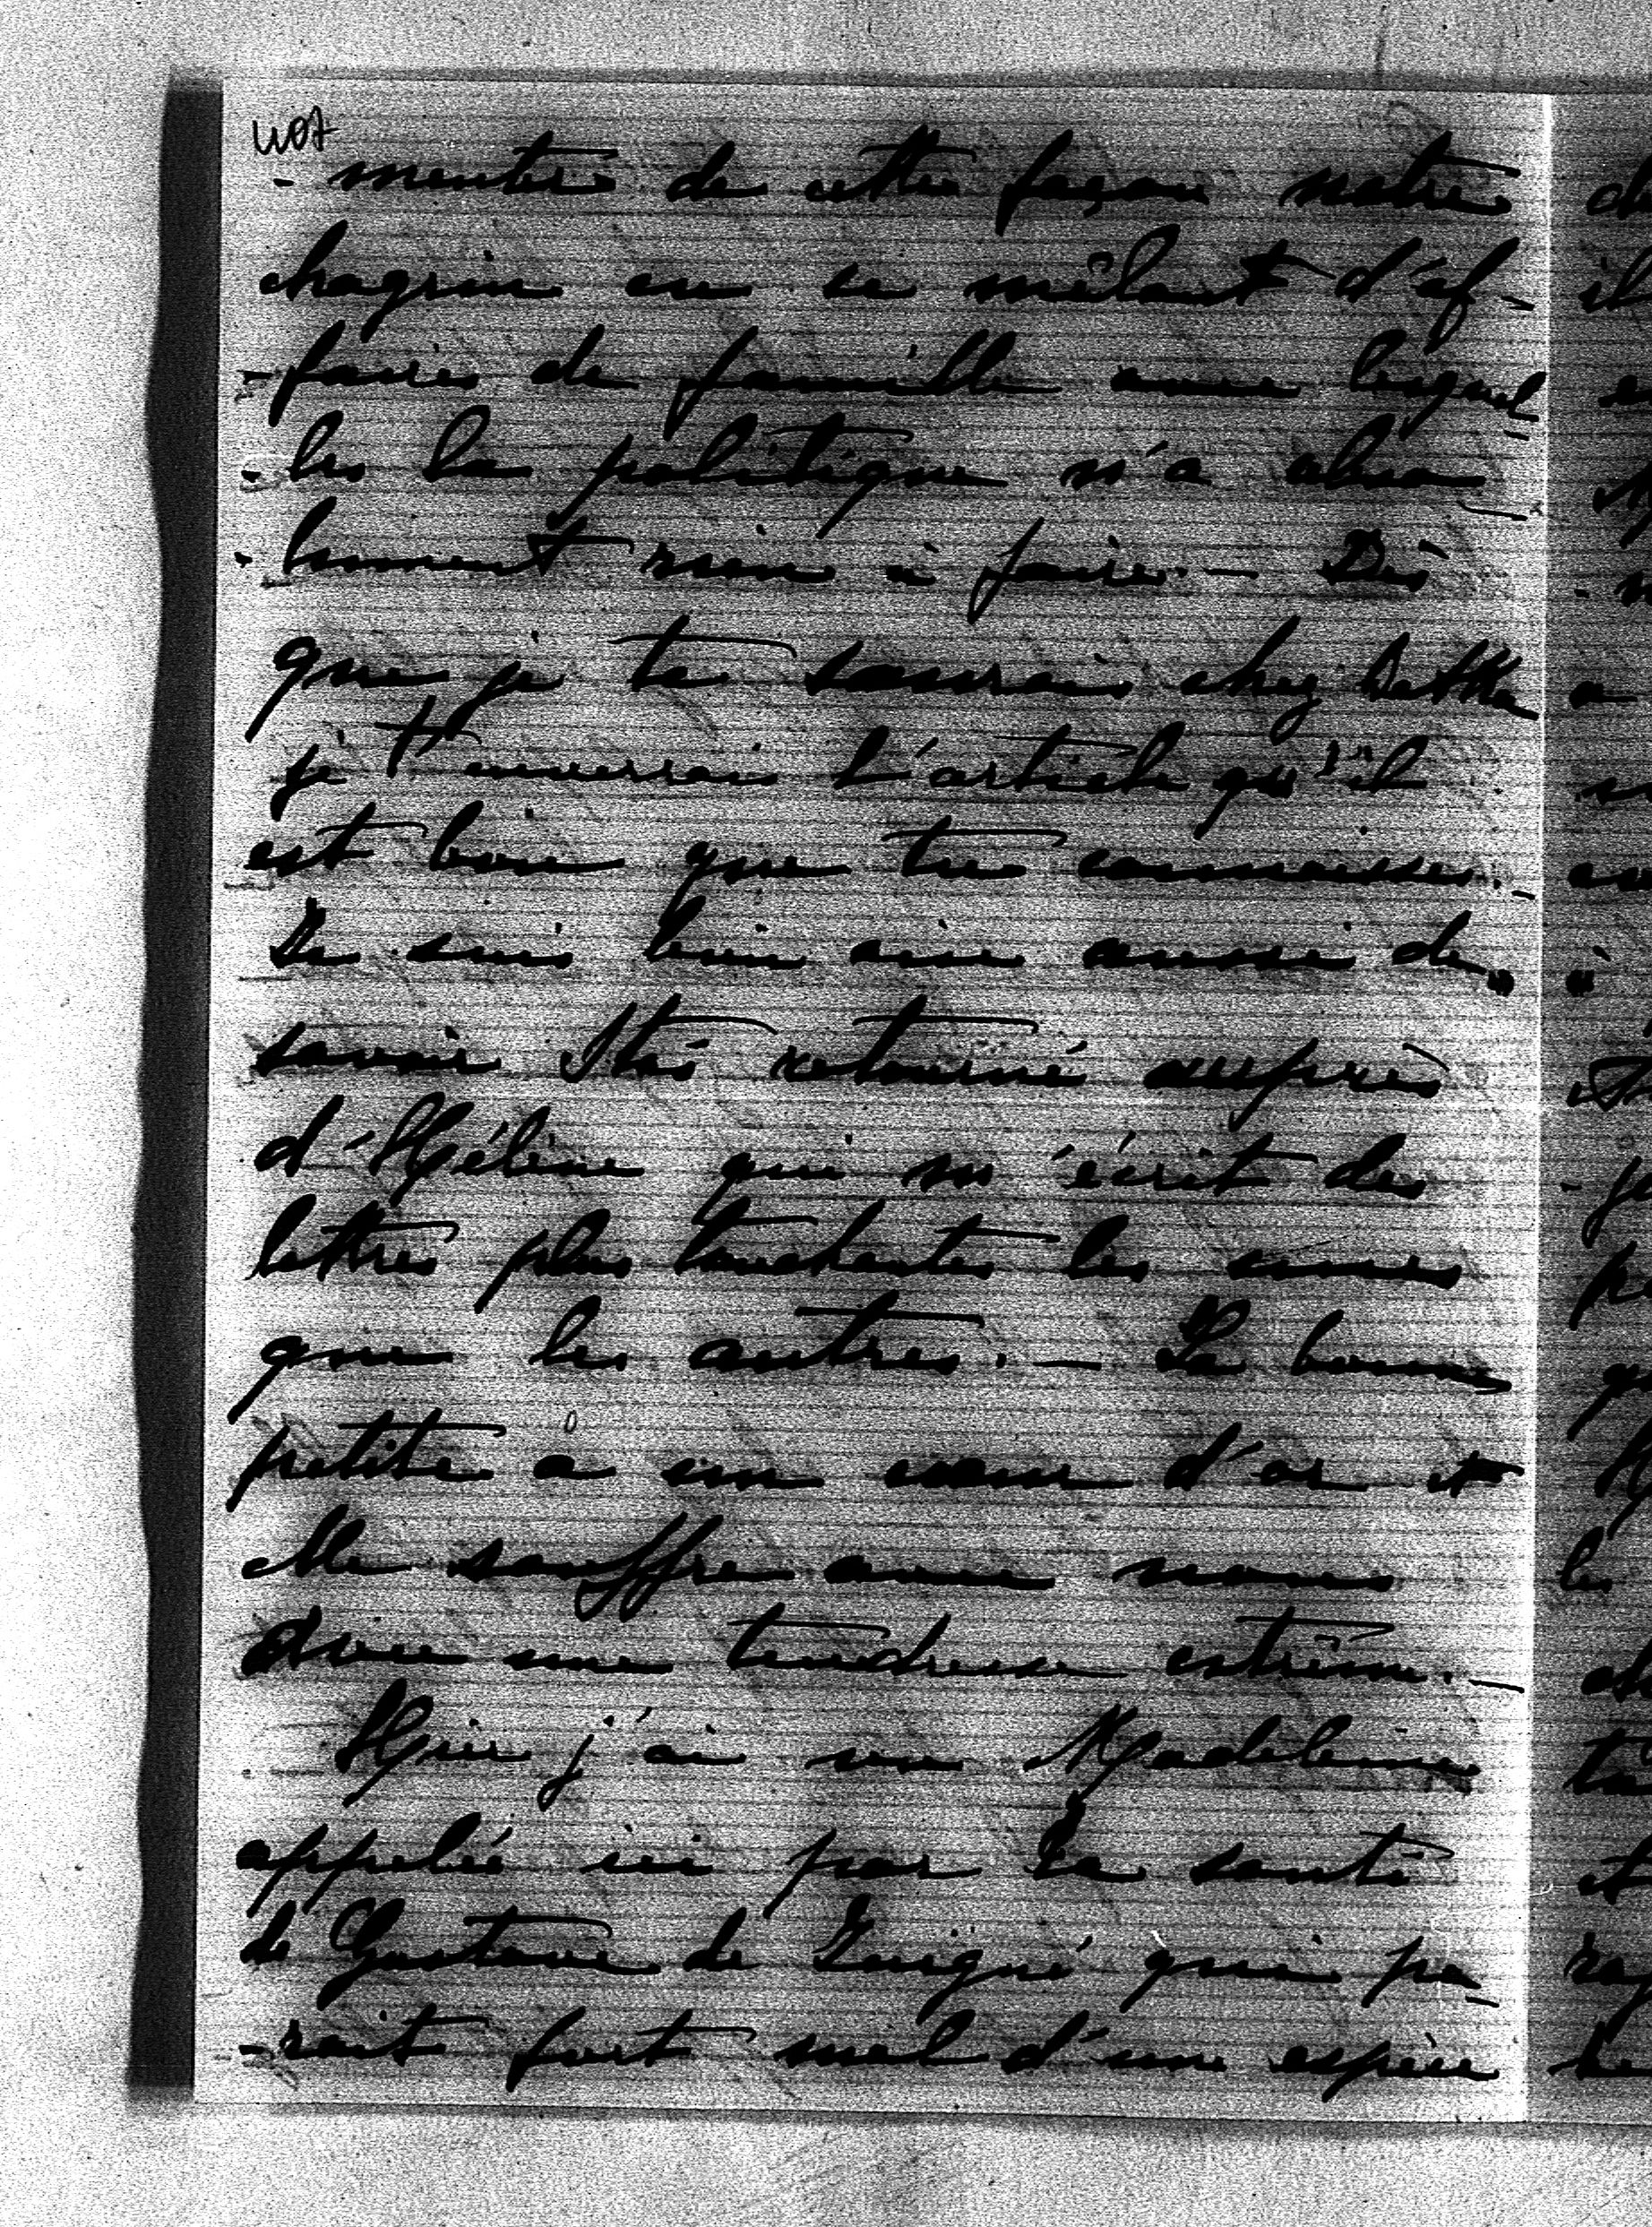 - menter de cette façon notre
chagrin en se mêlant d'af-
-faires de famille avec lesquel-
-les la politique n'a abso-
-lument rien à faire. — Dès
que je te saurai chez Berthe
je t'enverrai l'article qu'il
est bon que tu connaisses. —
Je suis bien aise aussi de
savoir retourné auprès
d'Hélène qui m'écrit des
lettres plus touchantes les unes
que les autres. — La bonne
petite a un cœur d'or et
elle souffre avec nous
avec une tendresse extrême. —
Hier j'ai vu Madeleine
appelée ici par la santé
de Gustave de qui pa-
-rait fort mal d'une espèce